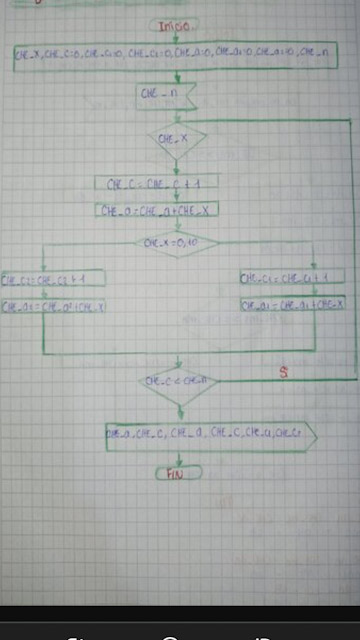 Inicio
CHE_X, CHE_C=0, CHE_C1=0, CHE_C2=0, CHE_a=0, CHE_a1=0, CHE_a2=0, CHE_n
CHE_n
CHE_X
CHE_C = CHE_C + 1
CHE_a = CHE_a + CHE_X
CHE_X = 0,10
CHE_C2 = CHE_C2 + 1
CHE_C1 = CHE_C1 + 1
CHE_a2 = CHE_a2 + CHE_X
CHE_a1 = CHE_a1 + CHE_X
CHE_C < CHE_n
Si
CHE_a, CHE_C, CHE_a, CHE_C, CHE_a, CHE_C
FIN